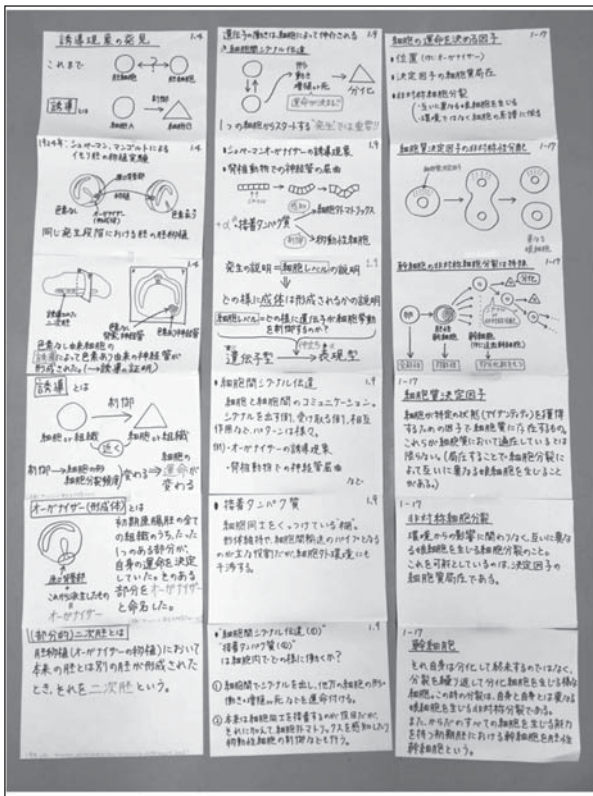 誘導現象の発見 1.4
これまで
胚細胞 胚細胞
誘導 とは
制御
細胞A 細胞B
1924年:シュペーマン、マンゴルトによる
イモリ胚の移植実験
移植
オーガナイザー
同じ発生段階における胚の胚移植
1.4
誘導された
二次胚
色素なし由来細胞の
誘導によって色素あり由来の神経管が
形成された。(→誘導の証明)
誘導 とは
制御
細胞or組織 細胞or組織
近く
制御→細胞の形
細胞分裂頻度 変わる⇒運命が
変わる
オーガナイザー(形成体) とは
初期原腸胚の全て
の組織のうち、たった
1つのある部分が、
自身の運命を決定
していた。そのある
部分をオーガナイザー
と命名した。
原口背唇部
これから派生したもの
オーガナイザー
(部分的)二次胚とは
胚移植(オーガナイザーの移植)において
本来の胚とは別の胚が形成された
とき、それを二次胚という。
遺伝子の働きは細胞によって仲介される 1.9
細胞間シグナル伝達
形
動き
増殖or死
分化
運命が決まる
1つの細胞からスタートする"発生"では重要!!
1.9
・シュペーマンオーガナイザーの誘導現象
・脊椎動物での神経管の屈曲
感知→細胞外マトリックス
+α 接着タンパク質
制御→移動性細胞
1.9
発生の説明=細胞レベルの説明
どの様に成体は形成されるかの説明
細胞レベル=どの様に遺伝子が細胞挙動
を制御するのか?
遺伝子型 → 表現型
・細胞間シグナル伝達 1.9
細胞と細胞間のコミュニケーション。
シグナルを出す側、受け取る側、相互
作用など、パターンは様々。
例)・オーガナイザーの誘導現象
・脊椎動物での神経管屈曲
など
・接着タンパク質 1.9
細胞同士をくっつけている"糊"。
形体維持や、細胞間輸送のパイプとなる
のが主な役割だが、細胞外環境にも
干渉する。
・"細胞間シグナル伝達(①)" 1.9
"接着タンパク質(②)"
は細胞内でどの様に働くか?
① 細胞間でシグナルを出し、他方の細胞の形・
働き・増殖or死などを運命付ける。
② 本来は細胞同士を接着するのが役目だが、
それに加えて細胞外マトリックスを感知したり
移動性細胞の制御なども行う。
細胞の運命を決める因子 1-17
・位置(特にオーガナイザー)
・決定因子の細胞質局在
・非対称細胞分裂
・互いに異なる娘細胞を生じる
・環境ではなく細胞の系譜に依る
細胞質決定因子の非対称性分配 1-17
細胞質決定因子
異なる
娘細胞
幹細胞の非対称細胞分裂は特殊 1-17
分化
卵
胚性
幹細胞
幹細胞
1-17
細胞質決定因子
細胞が特定の状態(アイデンティティ)を獲得
するための因子で細胞質に存在するもの。
これらが細胞質において遍在しているとは
限らない。(局在することで細胞分裂によ
って互いに異なる娘細胞を生じることが
ある。)
1-17
非対称細胞分裂
環境からの影響に関わりなく、互いに異な
る娘細胞を生じる細胞分裂のこと。
これを可能としているのは、決定因子の
細胞質局在である。
1-17
幹細胞
それ自身は分化して終末するのではなく、
分裂を繰り返して分化細胞を生じる様な
細胞。この時の分裂は、自身と自身とは異なる
娘細胞を生じる非対称分裂である。
また、からだのすべての細胞を生じる能力
を持つ初期胚における幹細胞を胚性
幹細胞という。